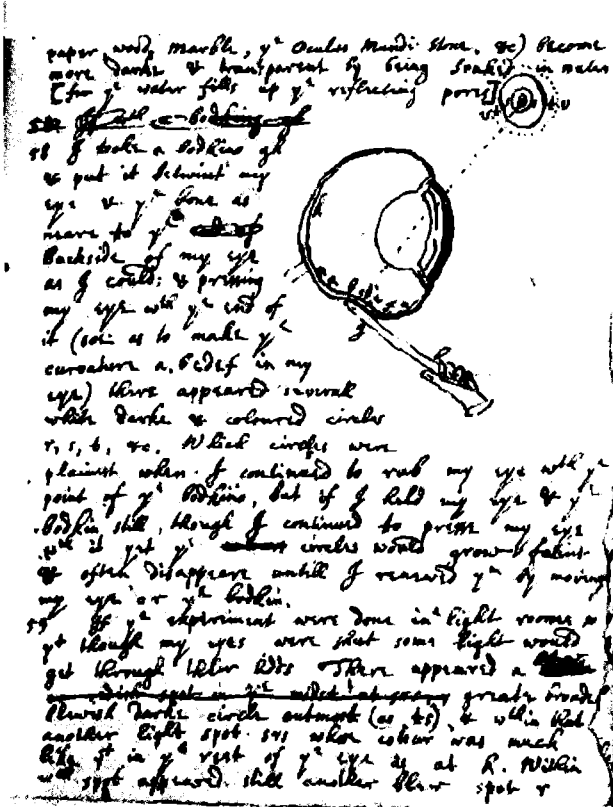 paper, wood, marble, yᵉ Oculus Mundi stone, &c) become
more darke & transparent by being soaked in water
[for yᵉ water fills up yᵉ reflecting pores]
58 I tooke a bodkine gh
& put it betwixt my
eye & yᵉ bone as
neare to yᵉ
backside of my eye
as I could: & pressing
my eye wᵗʰ yᵉ end of
it (soe as to make yᵉ
curvature a, bcdef in my
eye) there appeared severall
white darke & coloured circles
r, s, t, &c. Which circles were
plainest when I continued to rub my eye wᵗʰ yᵉ
point of yᵉ bodkine, but if I held my eye & yᵉ
bodkin still, though I continued to presse my eye
wᵗʰ it yet yᵉ circles would grow faint
& often disappeare untill I renewed yᵐ by moving
my eye or yᵉ bodkin.
59 If yᵉ experiment were done in a light roome so
yᵗ though my eyes were shut some light would
get through their lidds There appeared a
greate broade
blewish darke circle outmost (as ts) & wᵗʰin that
another light spot srs whose colour was much
like yᵗ in yᵉ rest of yᵉ eye as at k. Within
wᶜʰ spot appeared still another blew spot r